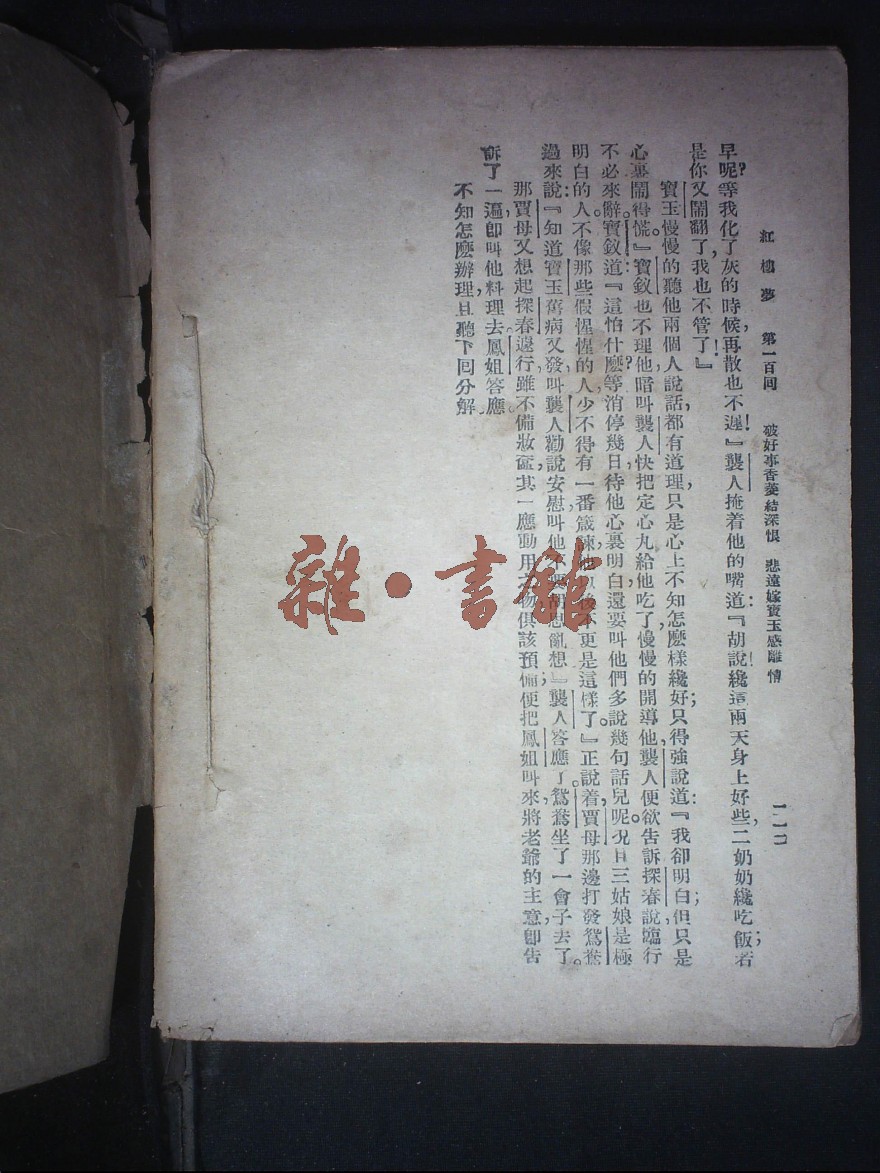 紅樓夢　第一百回　破好事香菱結深恨　悲遠嫁寶玉感離情　一二〇
早呢？等我化了灰的時候，再散也不遲！』襲人掩着他的嘴道：『胡說！纔這兩天身上好些，二奶奶纔吃飯；若
是你又鬧翻了，我也不管了！』
寶玉慢慢的聽他兩個人說話，都有道理，只是心上不知怎麼樣纔好；只得強說道：『我卻明白；但只是
心裏鬧得慌。』寶釵也不理他，暗叫襲人快把定心丸給他吃了，慢慢的開導他。襲人便欲告訴探春說，臨行
不必來辭。寶釵道：『這怕什麼？等消停幾日，待他心裏明白，還要叫他們多說幾句話兒呢。况且三姑娘是極
明白的人，不像那些假惺惺的人，少不得有一番箴諫，他以後不更是這樣了。』正說着，賈母那邊打發鴛鴦
過來說：『知道寶玉舊病又發，叫襲人勸說安慰，叫他不要胡思亂想。』襲人答應了。鴛鴦坐了一會子去了。
那賈母又想起探春遠行，雖不備妝奩，其一應動用之物，俱該預備；便把鳳姐叫來，將老爺的主意，卽告
訴了一遍，卽叫他料理去。鳳姐答應。
不知怎麼辦理，且聽下回分解。
雜·書館